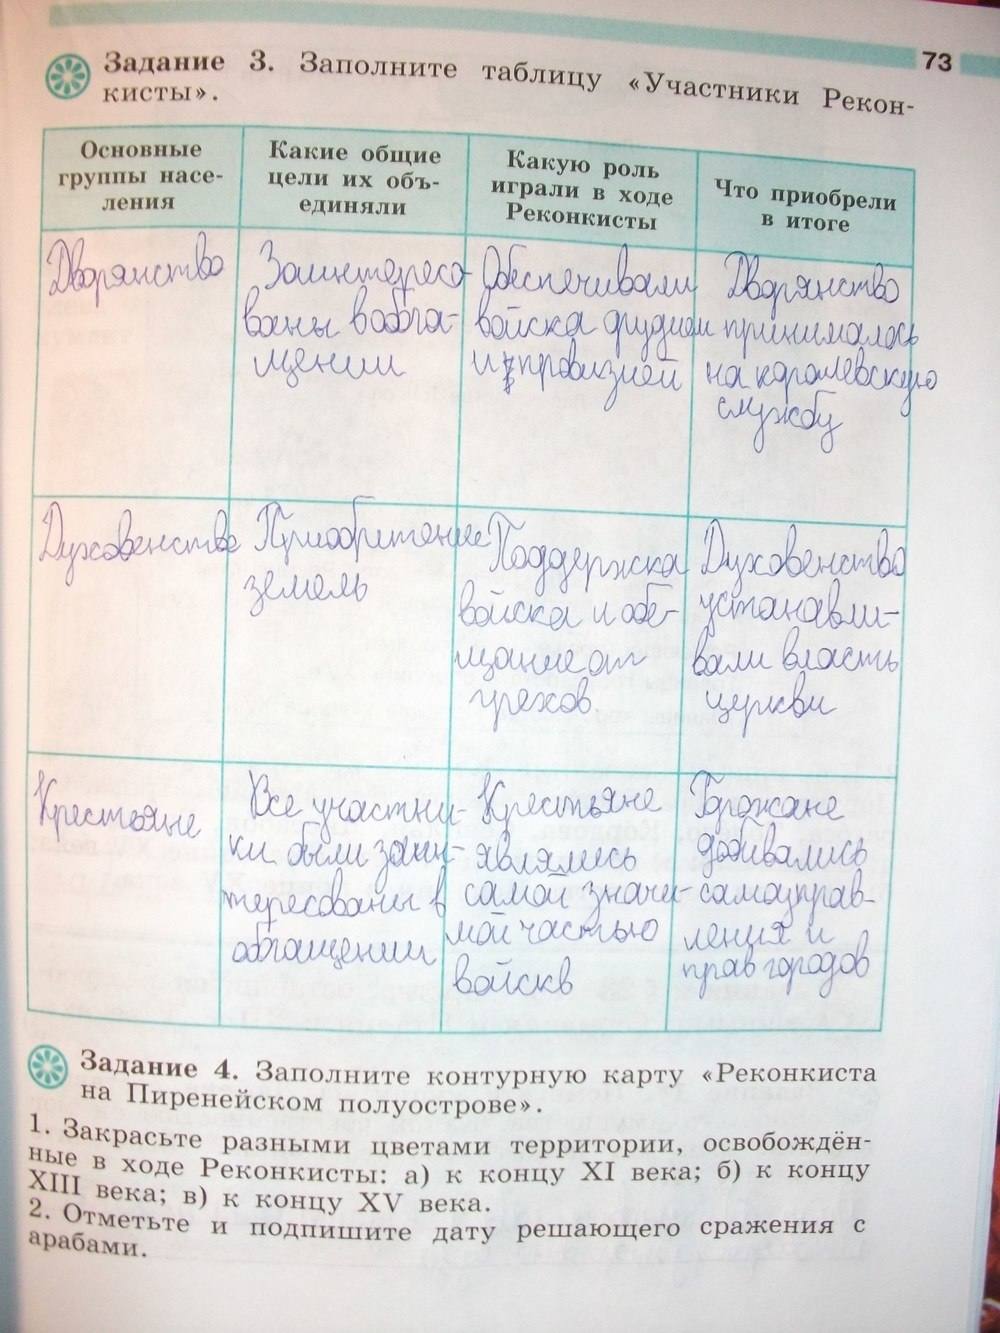 73
Задание 3. Заполните таблицу «Участники Рекон-
кисты».
Основные
группы насе-
ления
Какие общие
цели их объ-
единяли
Какую роль
играли в ходе
Реконкисты
Что приобрели
в итоге
Дворянство
Заинтересо
ваны в обога-
щении
Обеспечивали
войска орудием
и провизией
Дворянство
принималось
на королевскую
службу
Духовенство
Приобритение
земель
Поддержка
войска и обе-
щание от
грехов.
Духовенство
устанавли-
вали власть
церкви
Крестьяне
Все участни-
ки были заин-
тересованы в
обгащении
Крестьяне
являлись
самой значи-
мой частью
войскв
Горжане
добивались
самоуправ-
ления и
прав городов
Задание 4. Заполните контурную карту «Реконкиста
на Пиренейском полуострове».
1. Закрасьте разными цветами территории, освобождён-
ные в ходе Реконкисты: а) к концу XI века; б) к концу
XIII века; в) к концу XV века.
2. Отметьте и подпишите дату решающего сражения с
арабами.